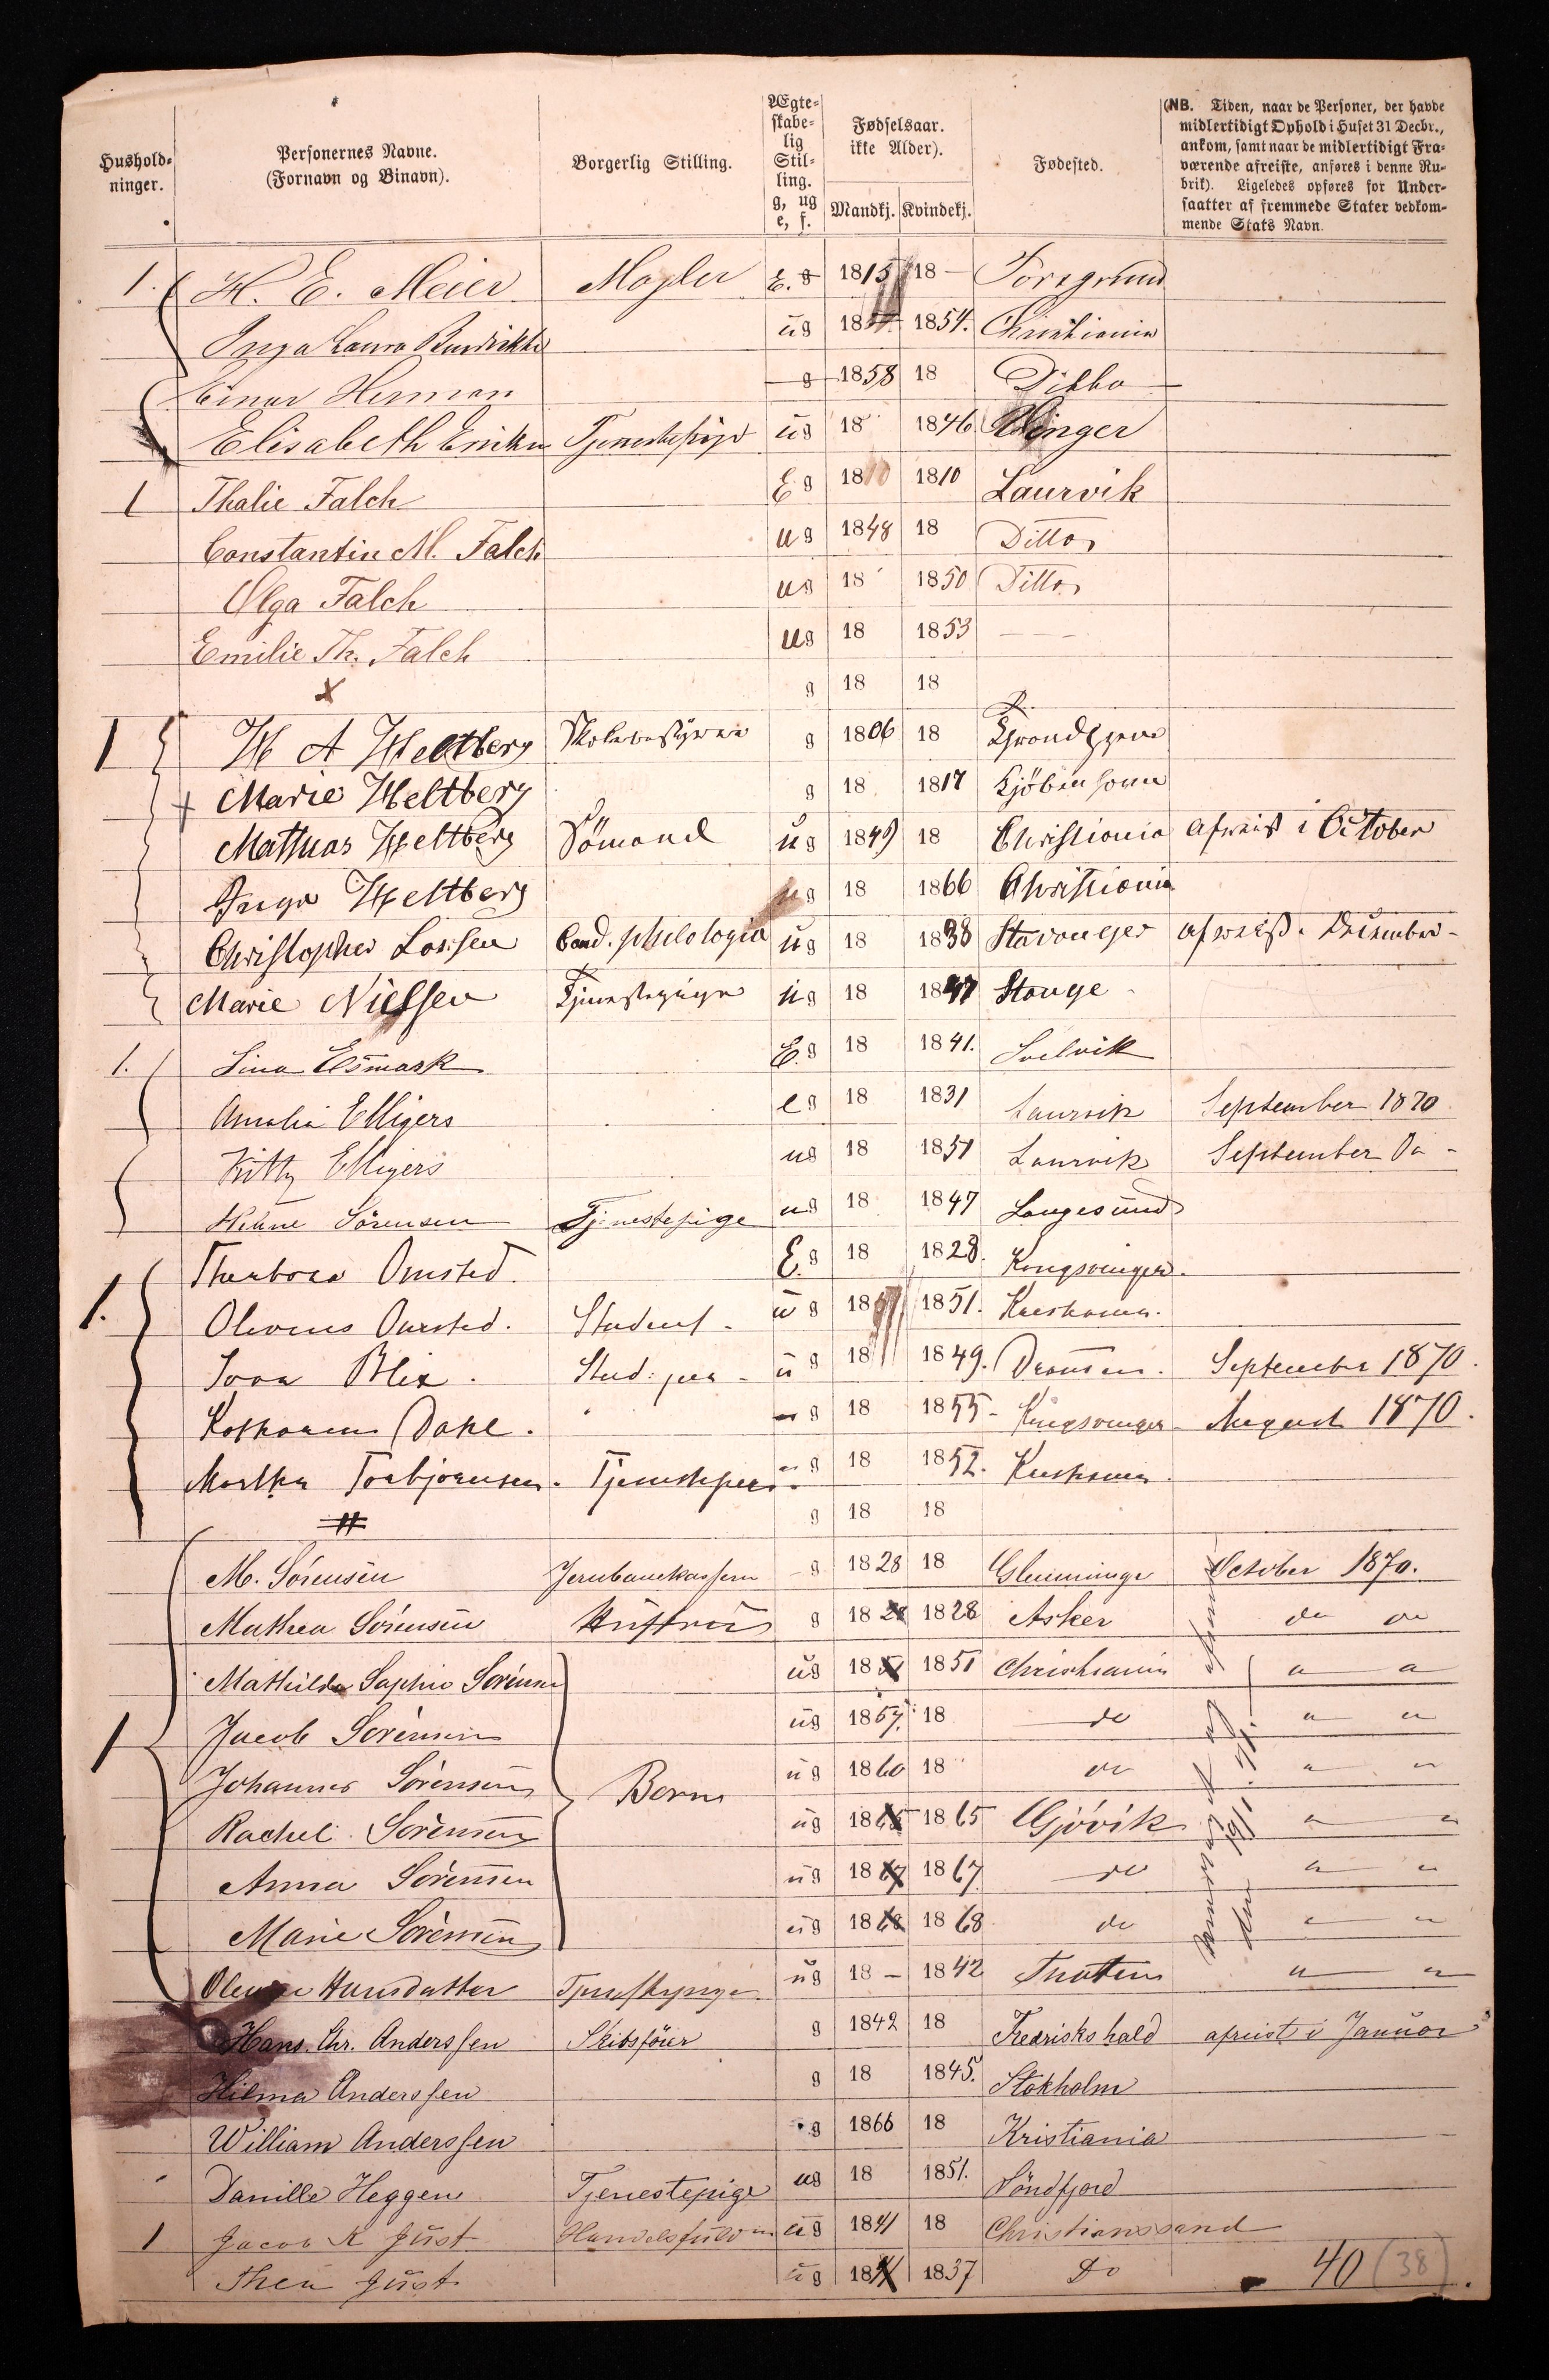 Hushold-
ninger.
Personernes Navne.
(Fornavn og Binavn).
Borgerlig Stilling.
Ægte-
skabe-
lig
Stil-
ling.
g, ug
e, f.
Fødselsaar.
ikke Alder).
Mandkj. Kvindekj.
Fødested.
(NB. Tiden, naar de Personer, der havde
midlertidigt Ophold i Huset 31 Decbr.,
ankom, samt naar de midlertidigt Fra-
værende afreiste, anføres i denne Ru-
brik). Ligeledes opføres for Under-
saatter af fremmede Stater vedkom-
mende Stats Navn.
1. H. E. Meier Mægler E. g 1815 18 – Porsgrund
Inga Laura ug 18 1854. Christiania
Einar Herman g 1858 18 Ditto
Elisabeth Tjenestepige ug 18 1846 Vinger
1 Thalie Falch E g 18 1810 Laurvik
Constantin M. Falch ug 1848 18 Ditto
Olga Falch ug 18 1850 Ditto
Emilie Th. Falch ug 18 1853 – – –
x g 18 18
1 H A Heltberg Skolebestyrer g 1806 18
+ Marie Heltberg g 18 1817 Kjöbenhavn
Mathias Heltberg Sömand ug 1849 18 Christiania afreist i October
Inga Heltberg ug 18 1866 Christiania
Christopher Lassen Cand. philologia ug 18 1838 Stavanger afreist. December -
Marie Nielsen Tjenestepige ug 18 1847 Stange
1. Lina Esmark E. g 18 1841. Svelvik
Amalia Elligers e g 18 1831 Laurvik September 1870
Kitty Elligers ug 18 1851 Laurvik September Do -
Helene Sörensen Tjenestepige ug 18 1847 Langesund
1. Omsted. E. g 18 1828. Kongsvinger.
Omsted. Student - ug 18 1851.
Blix. Stud: - ug 18 1849. Drammen. September 1870.
Dahl. g 18 1855 - Kongsvinger - August 1870.
Martha Torbjörnsen. g 18 1852.
g 18 18
M. Sörensen Jernbanekasserer g 1828 18 October 1870.
Mathea Sörensen Hustru g 18 1828 Asker do do
Mathilde Sophie Sörensen ug 18 1851 Christiania " "
1 Jacob Sörensen ug 1857. 18 do " "
Johannes Sörensen Børn ug 1860 18 do " "
Rachel Sörensen ug 18 1865 Gjövik " "
Anna Sörensen ug 18 1867 do " "
Marie Sörensen ug 18 1868 do " "
Hansdatter Tjenestepige ug 18 – 1842 Thoten " "
Hans Chr. Anderssen Skibsförer g 1842 18 Fredrikshald afreist i Januar
Hilma Anderssen g 18 1845. Stokholm
William Anderssen g 1866 18 Kristiania
Danille Heggen Tjenestepige ug 18 1851. Söndfjord
1 Jacob K Just ug 1841 18 Christianssand
Thea Just ug 18 1837 Do
40 (38)